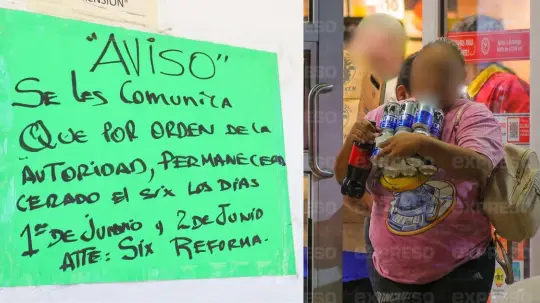 ENSIÓN
"AVISO"
Se les Comunica
Que POR ORDEN DE LA
AUTORIDAD, PERMANECERA
CERADO El SIX LOS DÍAS
1º DE JUNNIO y 2 DE JUNIO
ATTE: SIX REFORMA.
EXPRESO
EXPRESO